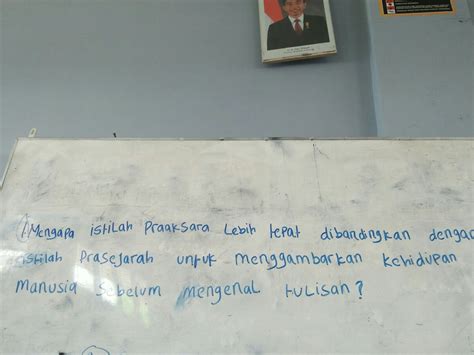 1. Mengapa istilah Praaksara Lebih tepat dibandingkan dengan
istilah Prasejarah untuk menggambarkan kehidupan
Manusia sebelum mengenal tulisan?